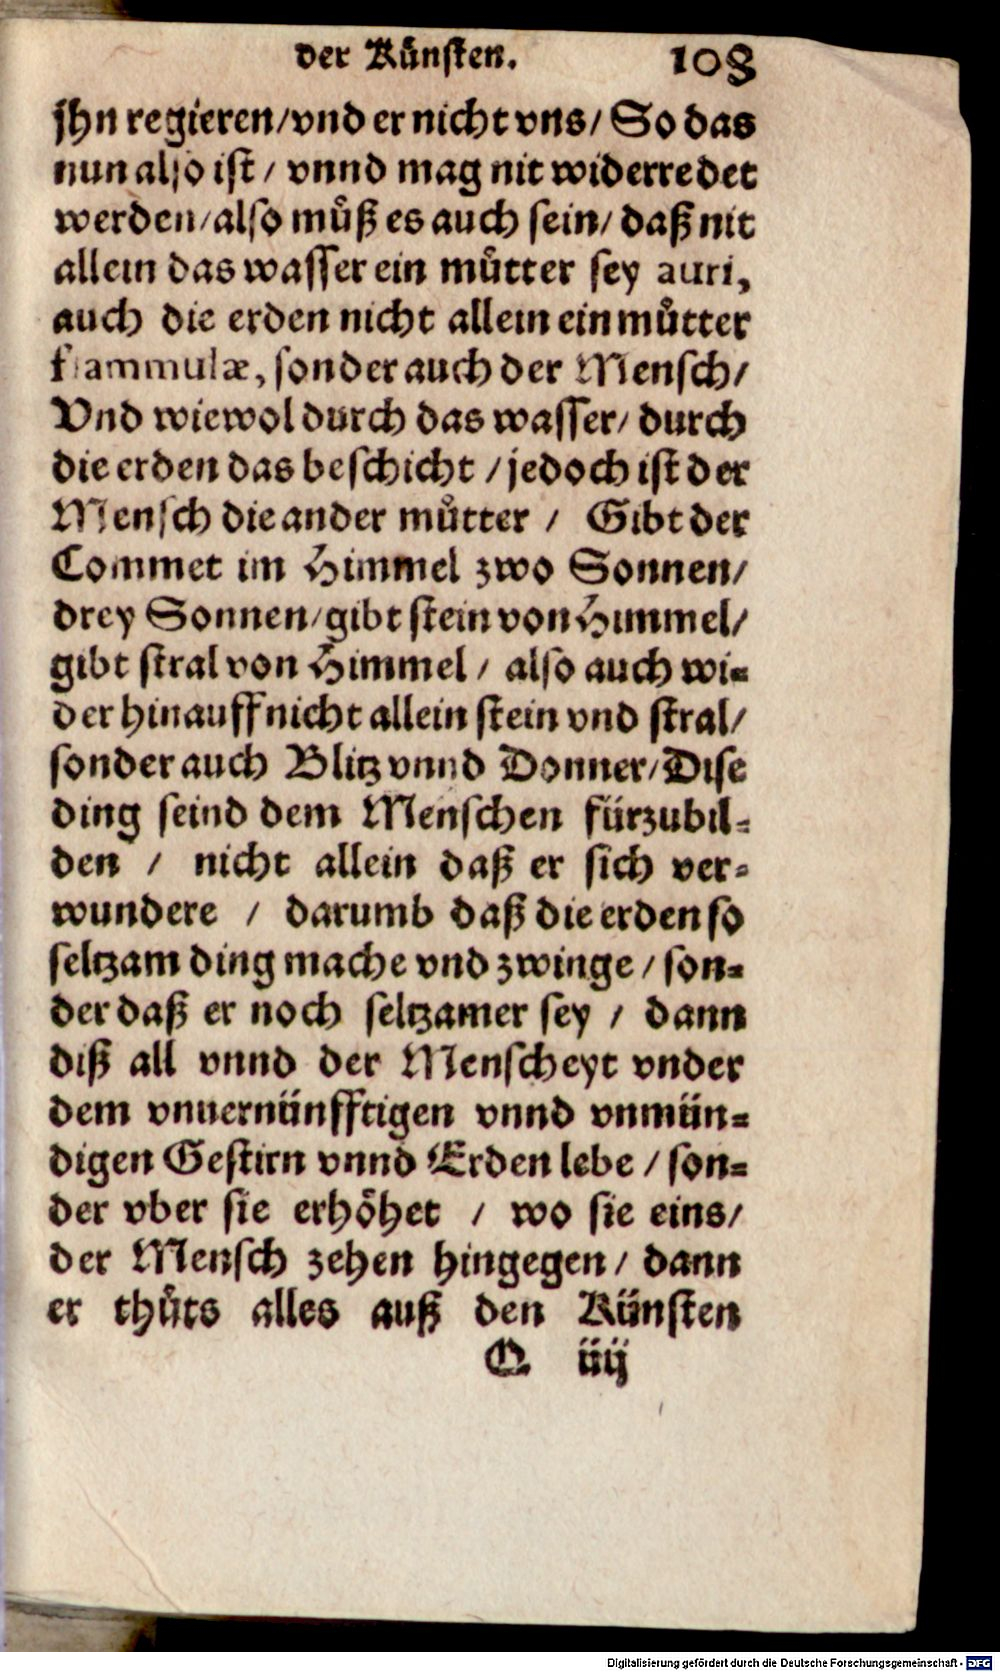 der Kuͤnſten. 108
jhn regieren/vnd er nicht vns/ So das
nun alſo iſt/ vnnd mag nit widerredet
werden/alſo muͤß es auch ſein/ daß nit
allein das waſſer ein muͤtter ſey auri,
auch die erden nicht allein ein muͤtter
flammulæ, ſonder auch der Menſch/
Vnd wiewol durch das waſſer/ durch
die erden das beſchicht /jedoch iſt der
Menſch die ander muͤtter / Gibt der
Commet im Himmel zwo Sonnen/
drey Sonnen/gibt ſtein von Himmel/
gibt ſtral von Himmel / alſo auch wi⸗
der hinauff nicht allein ſtein vnd ſtral/
ſonder auch Blitz vnnd Donner/Diſe
ding ſeind dem Menſchen fuͤrzubil⸗
den / nicht allein daß er ſich ver⸗
wundere / darumb daß die erden ſo
ſeltzam ding mache vnd zwinge / ſon⸗
der daß er noch ſeltzamer ſey / dann
diß all vnnd der Menſcheyt vnder
dem vnuernuͤnfftigen vnnd vnmuͤn⸗
digen Geſtirn vnnd Erden lebe / ſon⸗
der vber ſie erhoͤhet / wo ſie eins/
der Menſch zehen hingegen/ dann
er thuͤts alles auß den Kuͤnſten
O iiij
Digitalisierung gefördert durch die Deutsche Forschungsgemeinschaft - DFG